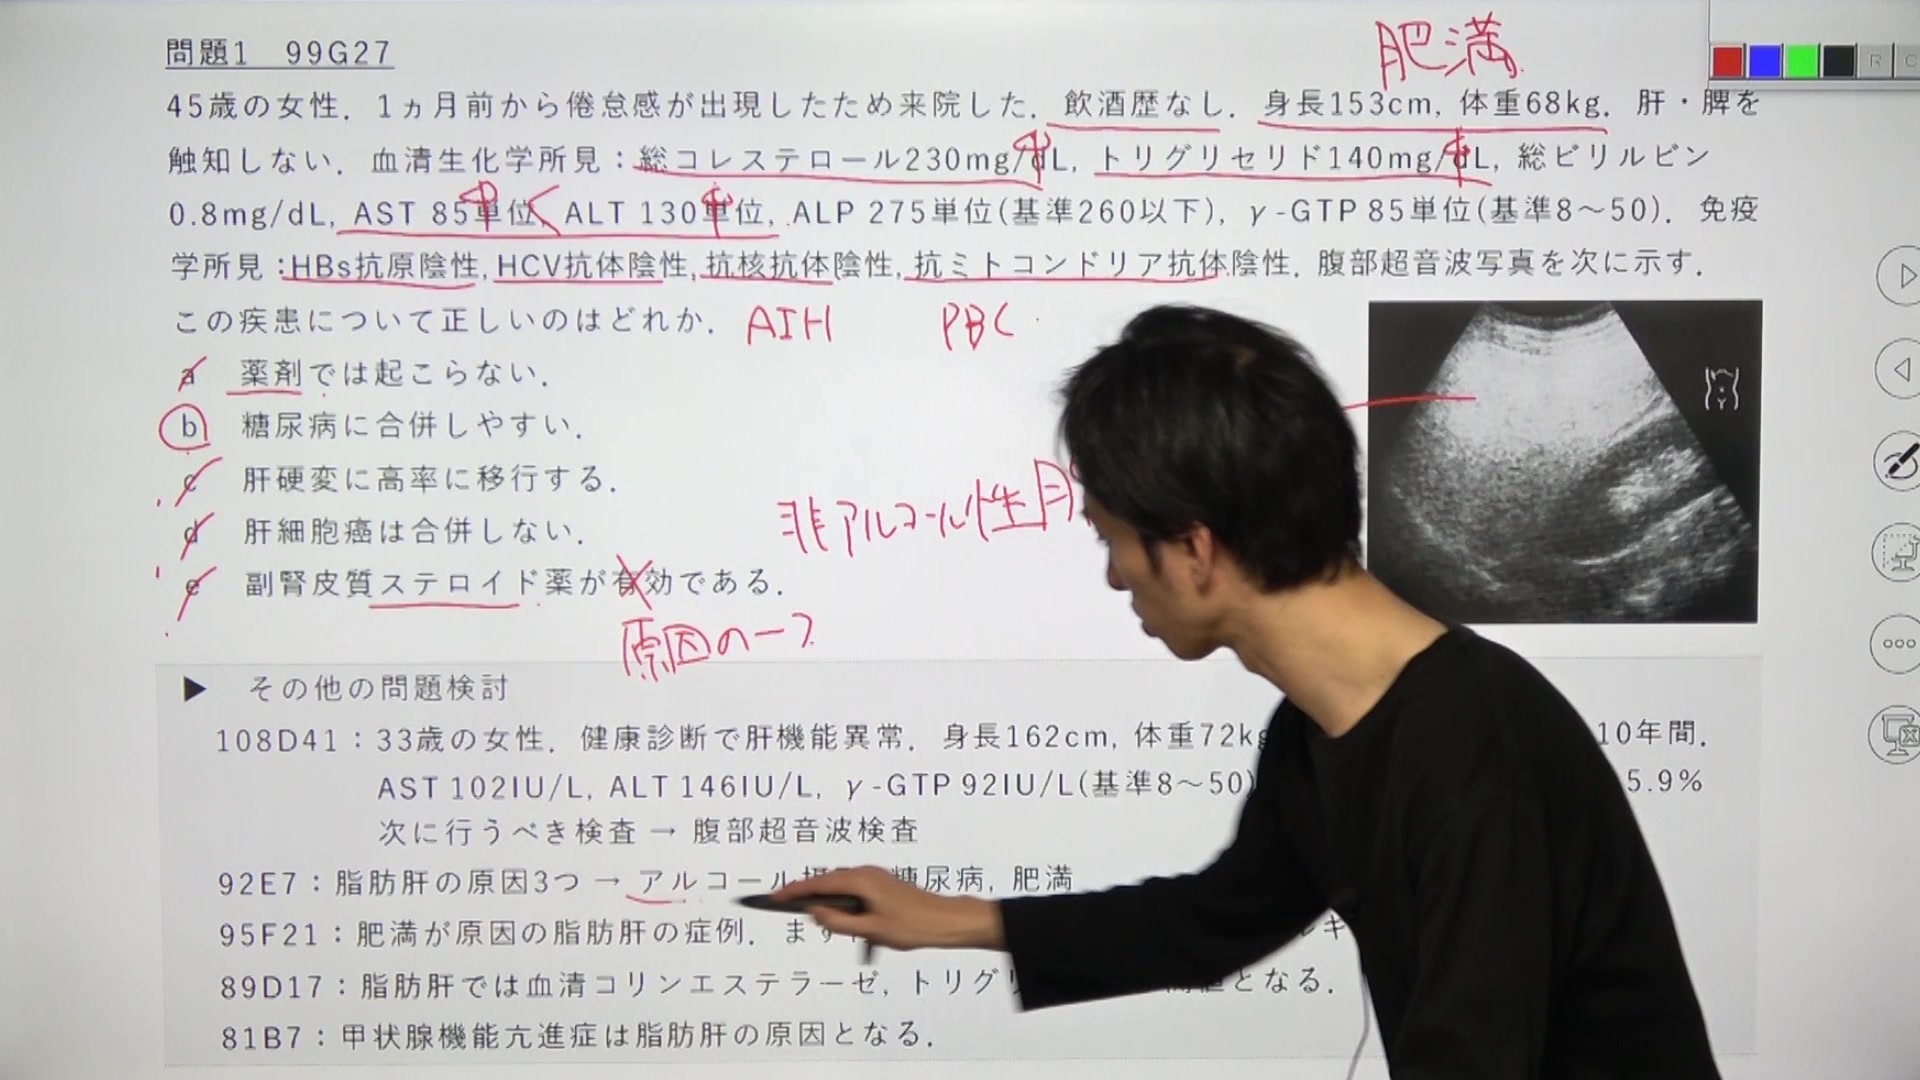 肥満
R
C
問題1 99G27
45歳の女性．1ヵ月前から倦怠感が出現したため来院した．飲酒歴なし．身長153cm, 体重68kg．肝・脾を
触知しない．血清生化学所見：総コレステロール230mg/dL, トリグリセリド140mg/dL, 総ビリルビン
0.8mg/dL, AST 85単位, ALT 130単位, ALP 275単位(基準260以下), γ-GTP 85単位(基準8～50)．免疫
学所見：HBs抗原陰性, HCV抗体陰性, 抗核抗体陰性, 抗ミトコンドリア抗体陰性．腹部超音波写真を次に示す．
この疾患について正しいのはどれか．
AIH PBC
a 薬剤では起こらない．
b 糖尿病に合併しやすい．
c 肝硬変に高率に移行する．
d 肝細胞癌は合併しない．
非アルコール性
e 副腎皮質ステロイド薬が有効である．
原因の一つ
▶ その他の問題検討
108D41：33歳の女性．健康診断で肝機能異常．身長162cm, 体重72kg 10年間．
AST 102IU/L, ALT 146IU/L, γ-GTP 92IU/L(基準8～50) 5.9%
次に行うべき検査 → 腹部超音波検査
92E7：脂肪肝の原因3つ → アルコール 糖尿病, 肥満
95F21：肥満が原因の脂肪肝の症例．まず
89D17：脂肪肝では血清コリンエステラーゼ, トリグリ となる．
81B7：甲状腺機能亢進症は脂肪肝の原因となる．